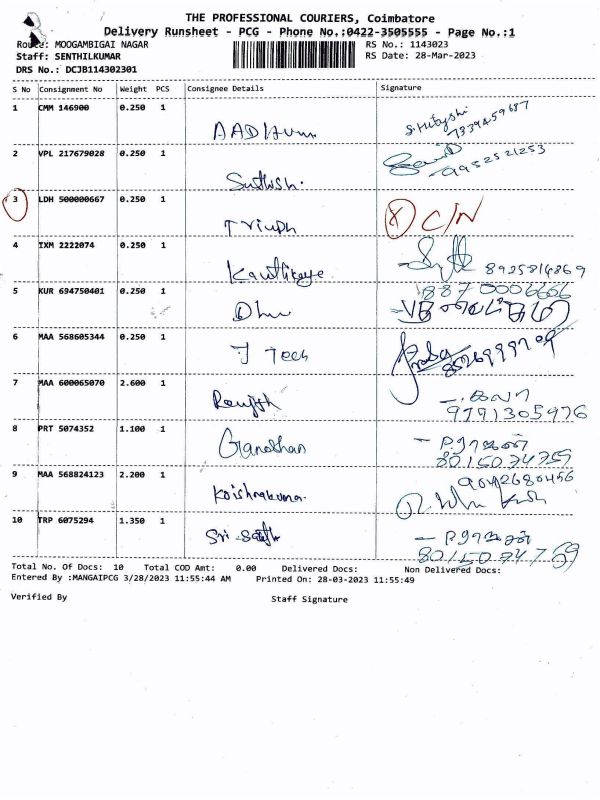 THE PROFESSIONAL COURIERS, Coimbatore
Delivery Runsheet - PCG - Phone No.:0422-3505555 - Page No.:1
Route: MOOGAMBIGAI NAGAR RS No.: 1143023
Staff: SENTHILKUMAR RS Date: 28-Mar-2023
DRS No.: DCJB114302301
S No Consignment No Weight PCS Consignee Details Signature
1 CMM 146900 0.250 1 7339459687
2 VPL 217679028 0.250 1 Suthish. 9952521253
3 LDH 500000667 0.250 1 Triuph X C/N
4 IXM 2222074 0.250 1 8925814869
5 KUR 694750401 0.250 1
6 MAA 568605344 0.250 1 J Tech
7 MAA 600065070 2.600 1 Ranjith 9791305976
8 PRT 5074352 1.100 1 8015074759
9 MAA 568824123 2.200 1 9042680456
10 TRP 6075294 1.350 1 8015074759
Total No. Of Docs: 10 Total COD Amt: 0.00 Delivered Docs: Non Delivered Docs:
Entered By :MANGAIPCG 3/28/2023 11:55:44 AM Printed On: 28-03-2023 11:55:49
Verified By Staff Signature